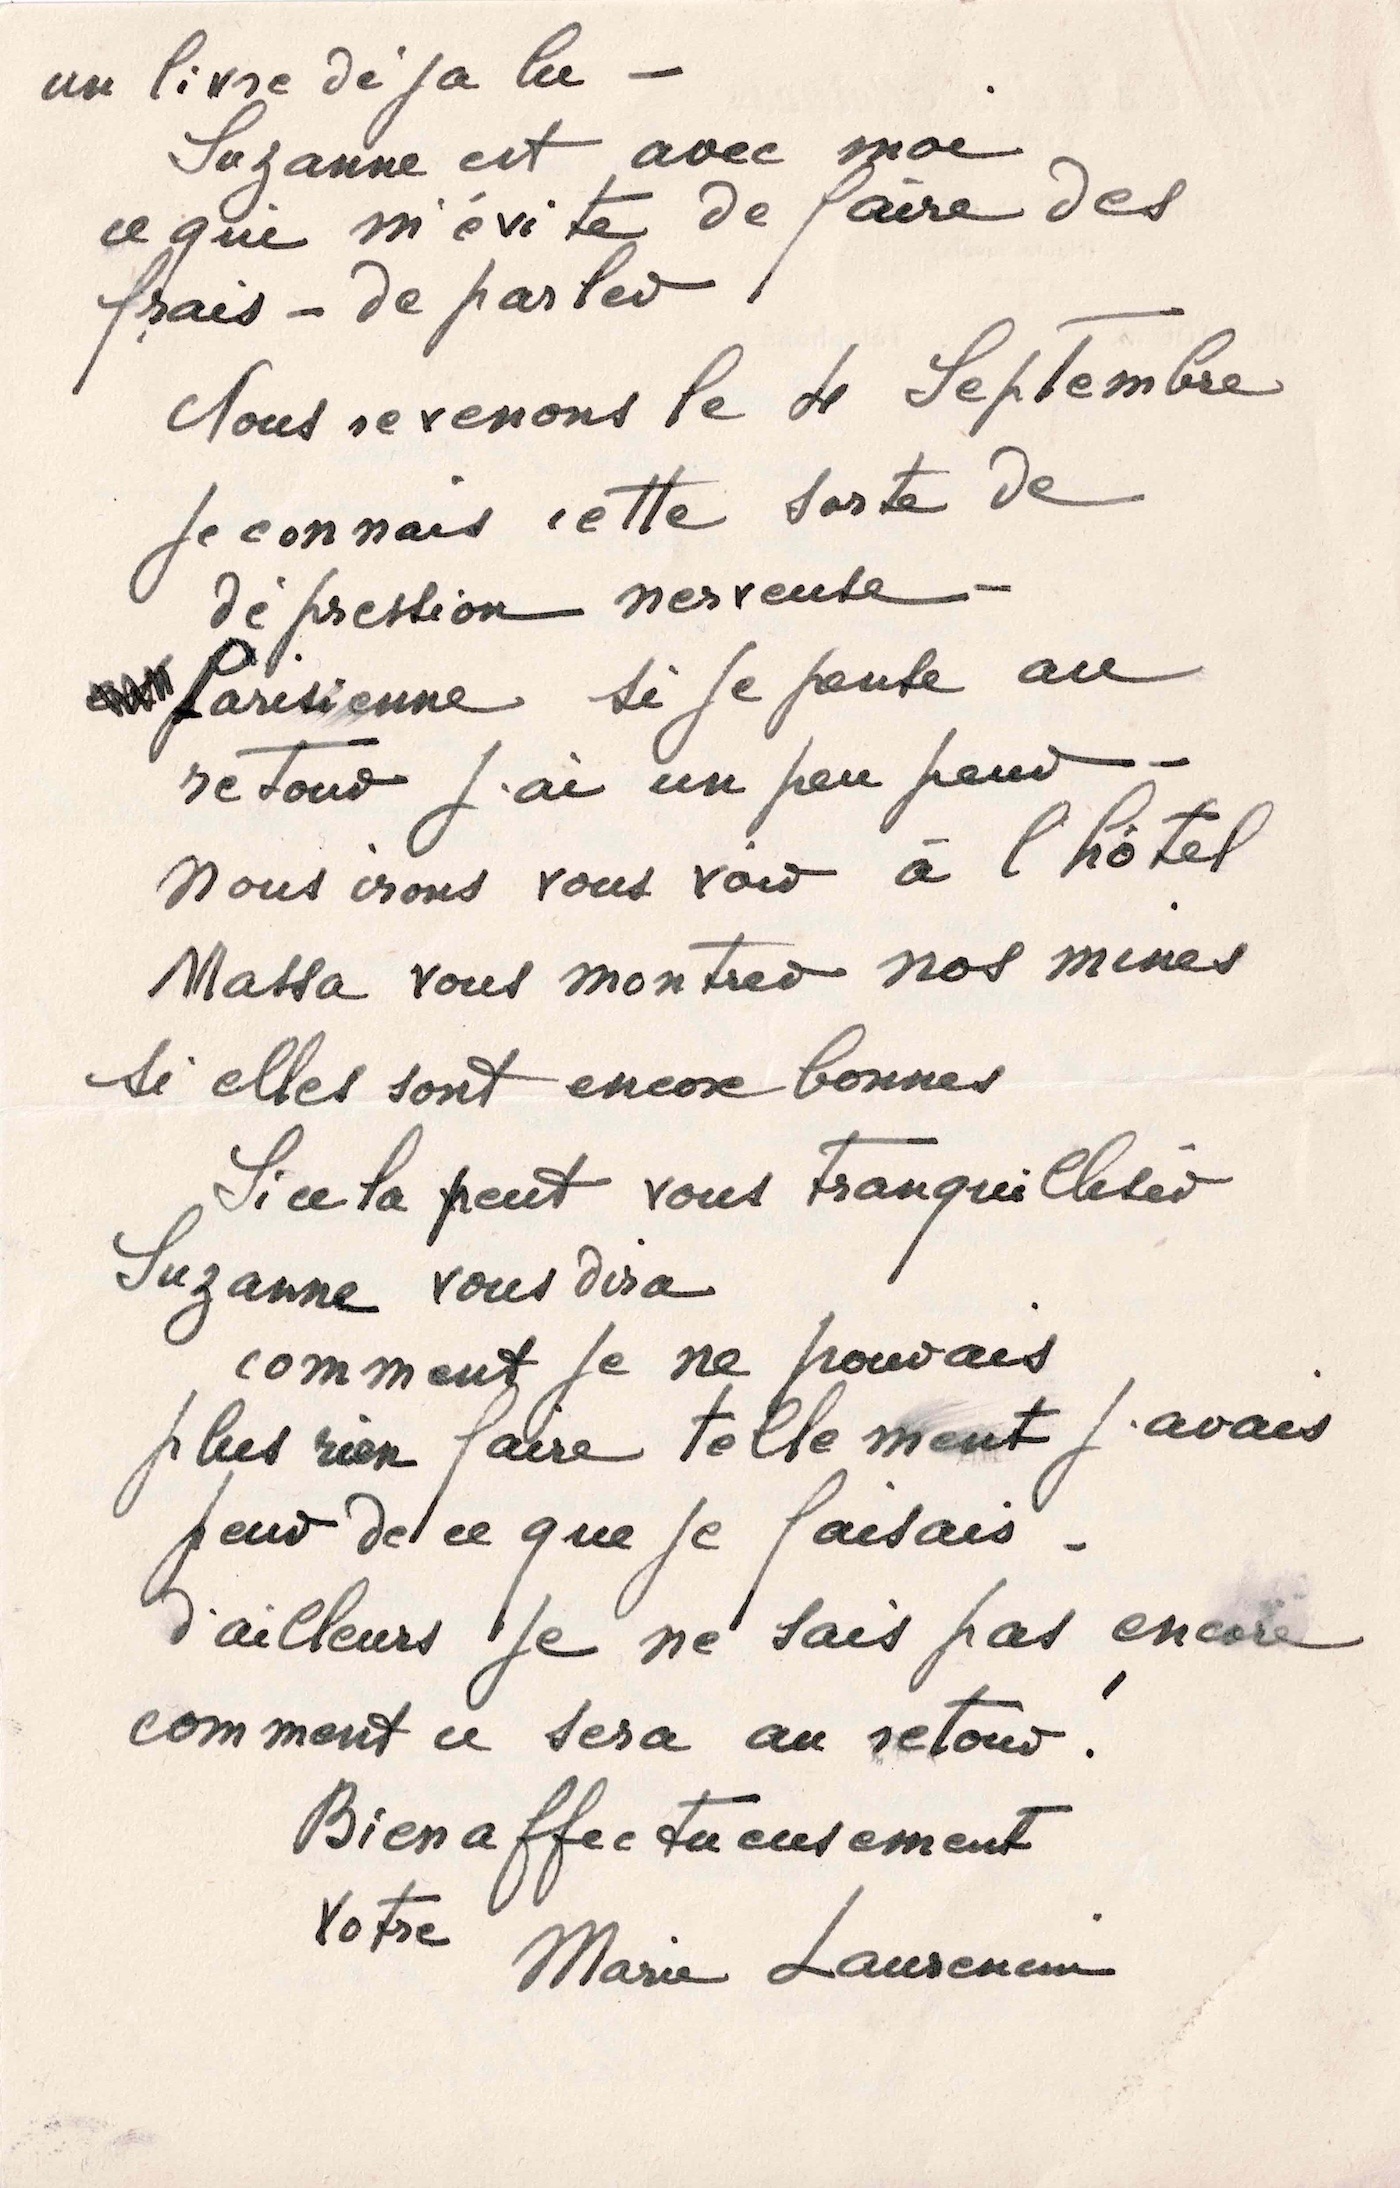 un livre déja lu –
Suzanne est avec moi
ce qui m'évite de faire des
frais – de parler
Nous revenons le 4 Septembre
Je connais cette sorte de
dépression nerveuse –
Parisienne si je pense au
retour j'ai un peu peur –
nous irons vous voir à l'hôtel
Massa vous montrer nos mines
si elles sont encore bonnes
Si cela peut vous tranquilliser
Suzanne vous dira
comment je ne pouvais
plus rien faire tellement j'avais
peur de ce que je faisais –
d'ailleurs je ne sais pas encore
comment ce sera au retour !
Bien affectueusement
votre Marie Laurencin